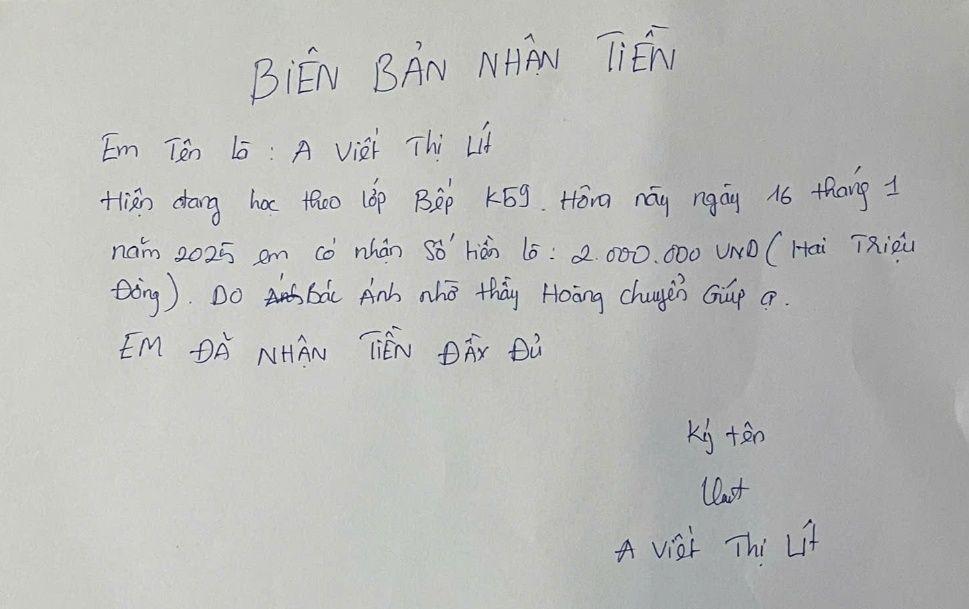 BIÊN BẢN NHẬN TIỀN
Em Tên là : A Viết Thị Lít
Hiện đang học theo lớp Bếp K59. Hôm nay ngày 16 tháng 1
năm 2025 em có nhận Số tiền là : 2.000.000 VND ( Hai Triệu
Đồng ). Do Ánh Bác Ánh nhờ thầy Hoàng chuyển Giúp ạ.
EM ĐÃ NHẬN TIỀN ĐẦY ĐỦ
Ký tên
A Viết Thị Lít